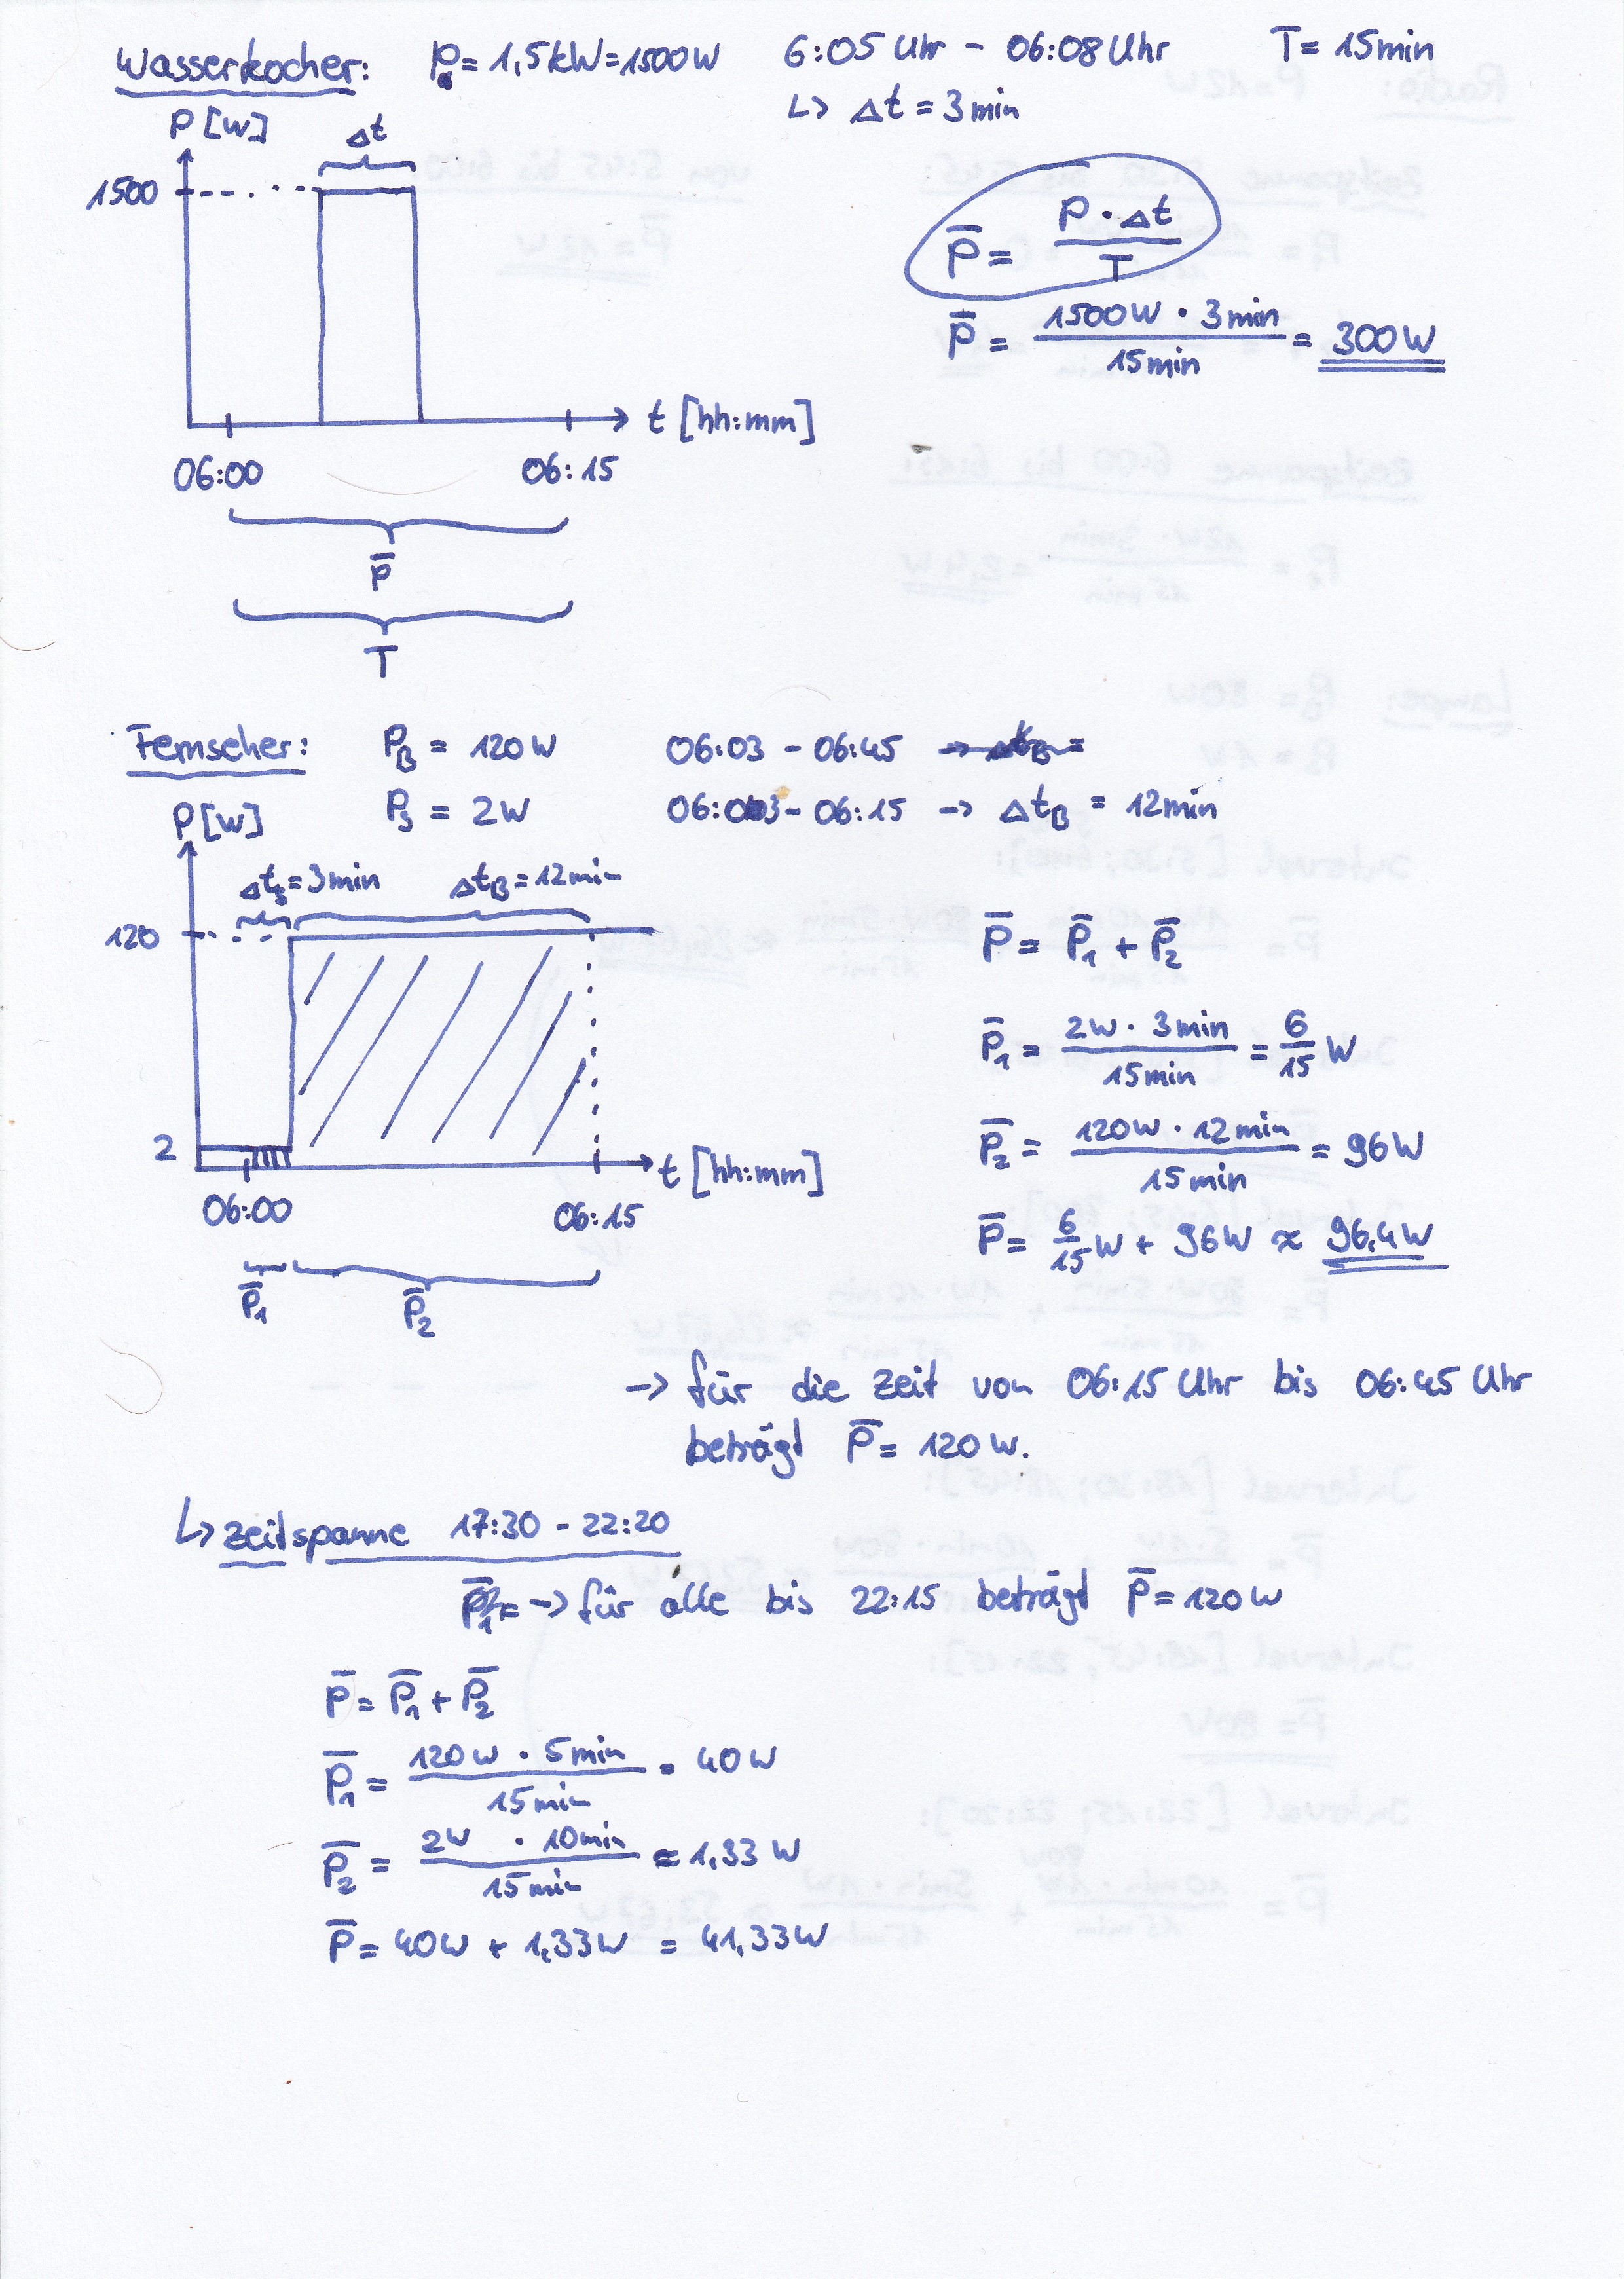 Wasserkocher: P = 1,5kW = 1500W 6:05 Uhr - 06:08 Uhr T = 15min
↳ Δt = 3min
P [W]
Δt
1500
P̅ = P · Δt / T
P̅ = 1500W · 3min / 15min = 300W
t [hh:mm]
06:00 06:15
P̅
T
Fernseher: P_B = 120W 06:03 - 06:45
P_S = 2W 06:03 - 06:15 → Δt_B = 12min
P [W]
Δt_S = 3min Δt_B = 12min
120
P̅ = P̅₁ + P̅₂
P̅₁ = 2W · 3min / 15min = 6/15 W
P̅₂ = 120W · 12min / 15min = 96W
2
t [hh:mm]
06:00 06:15
P̅ = 6/15 W + 96W ≈ 96,4W
P̅₁ P̅₂
→ für die Zeit von 06:15 Uhr bis 06:45 Uhr
beträgt P̅ = 120W.
↳ Zeitspanne 17:30 - 22:20
→ für alle bis 22:15 beträgt P̅ = 120W
P̅ = P̅₁ + P̅₂
P̅₁ = 120W · 5min / 15min = 40W
P̅₂ = 2W · 10min / 15min = 1,33W
P̅ = 40W + 1,33W = 41,33W